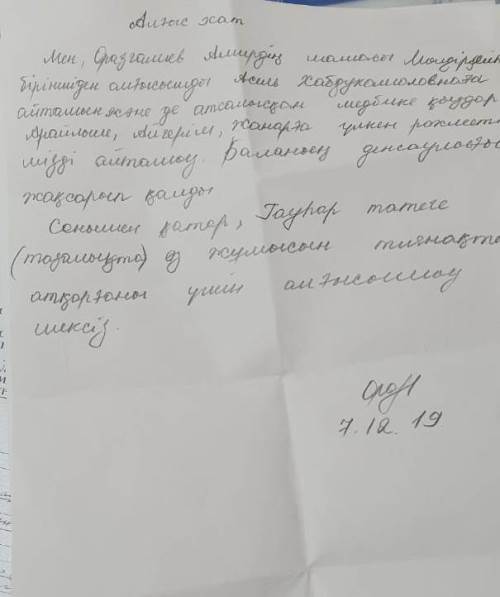 Алғыс хат
Мен, Оразғалиев Амирдің мамасы Мөлдірден
біріншіден алғысымды Асель Хабдукамаловнаға
айтамын және де атсалысқан медбике қыздар
Арайлым, Айгерім, Жанарға үлкен рахметі
мізді айтамыз. Баланың денсаулығы
жақсарып қалды
Сонымен қатар, Гауһар тәтеге
(тазалықта) өз жұмысын тиянақты
атқарғаны үшін алғысымыз
шексіз.
7.12.19